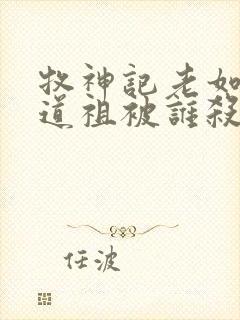 牧神記老如
道祖被誰殺
任波